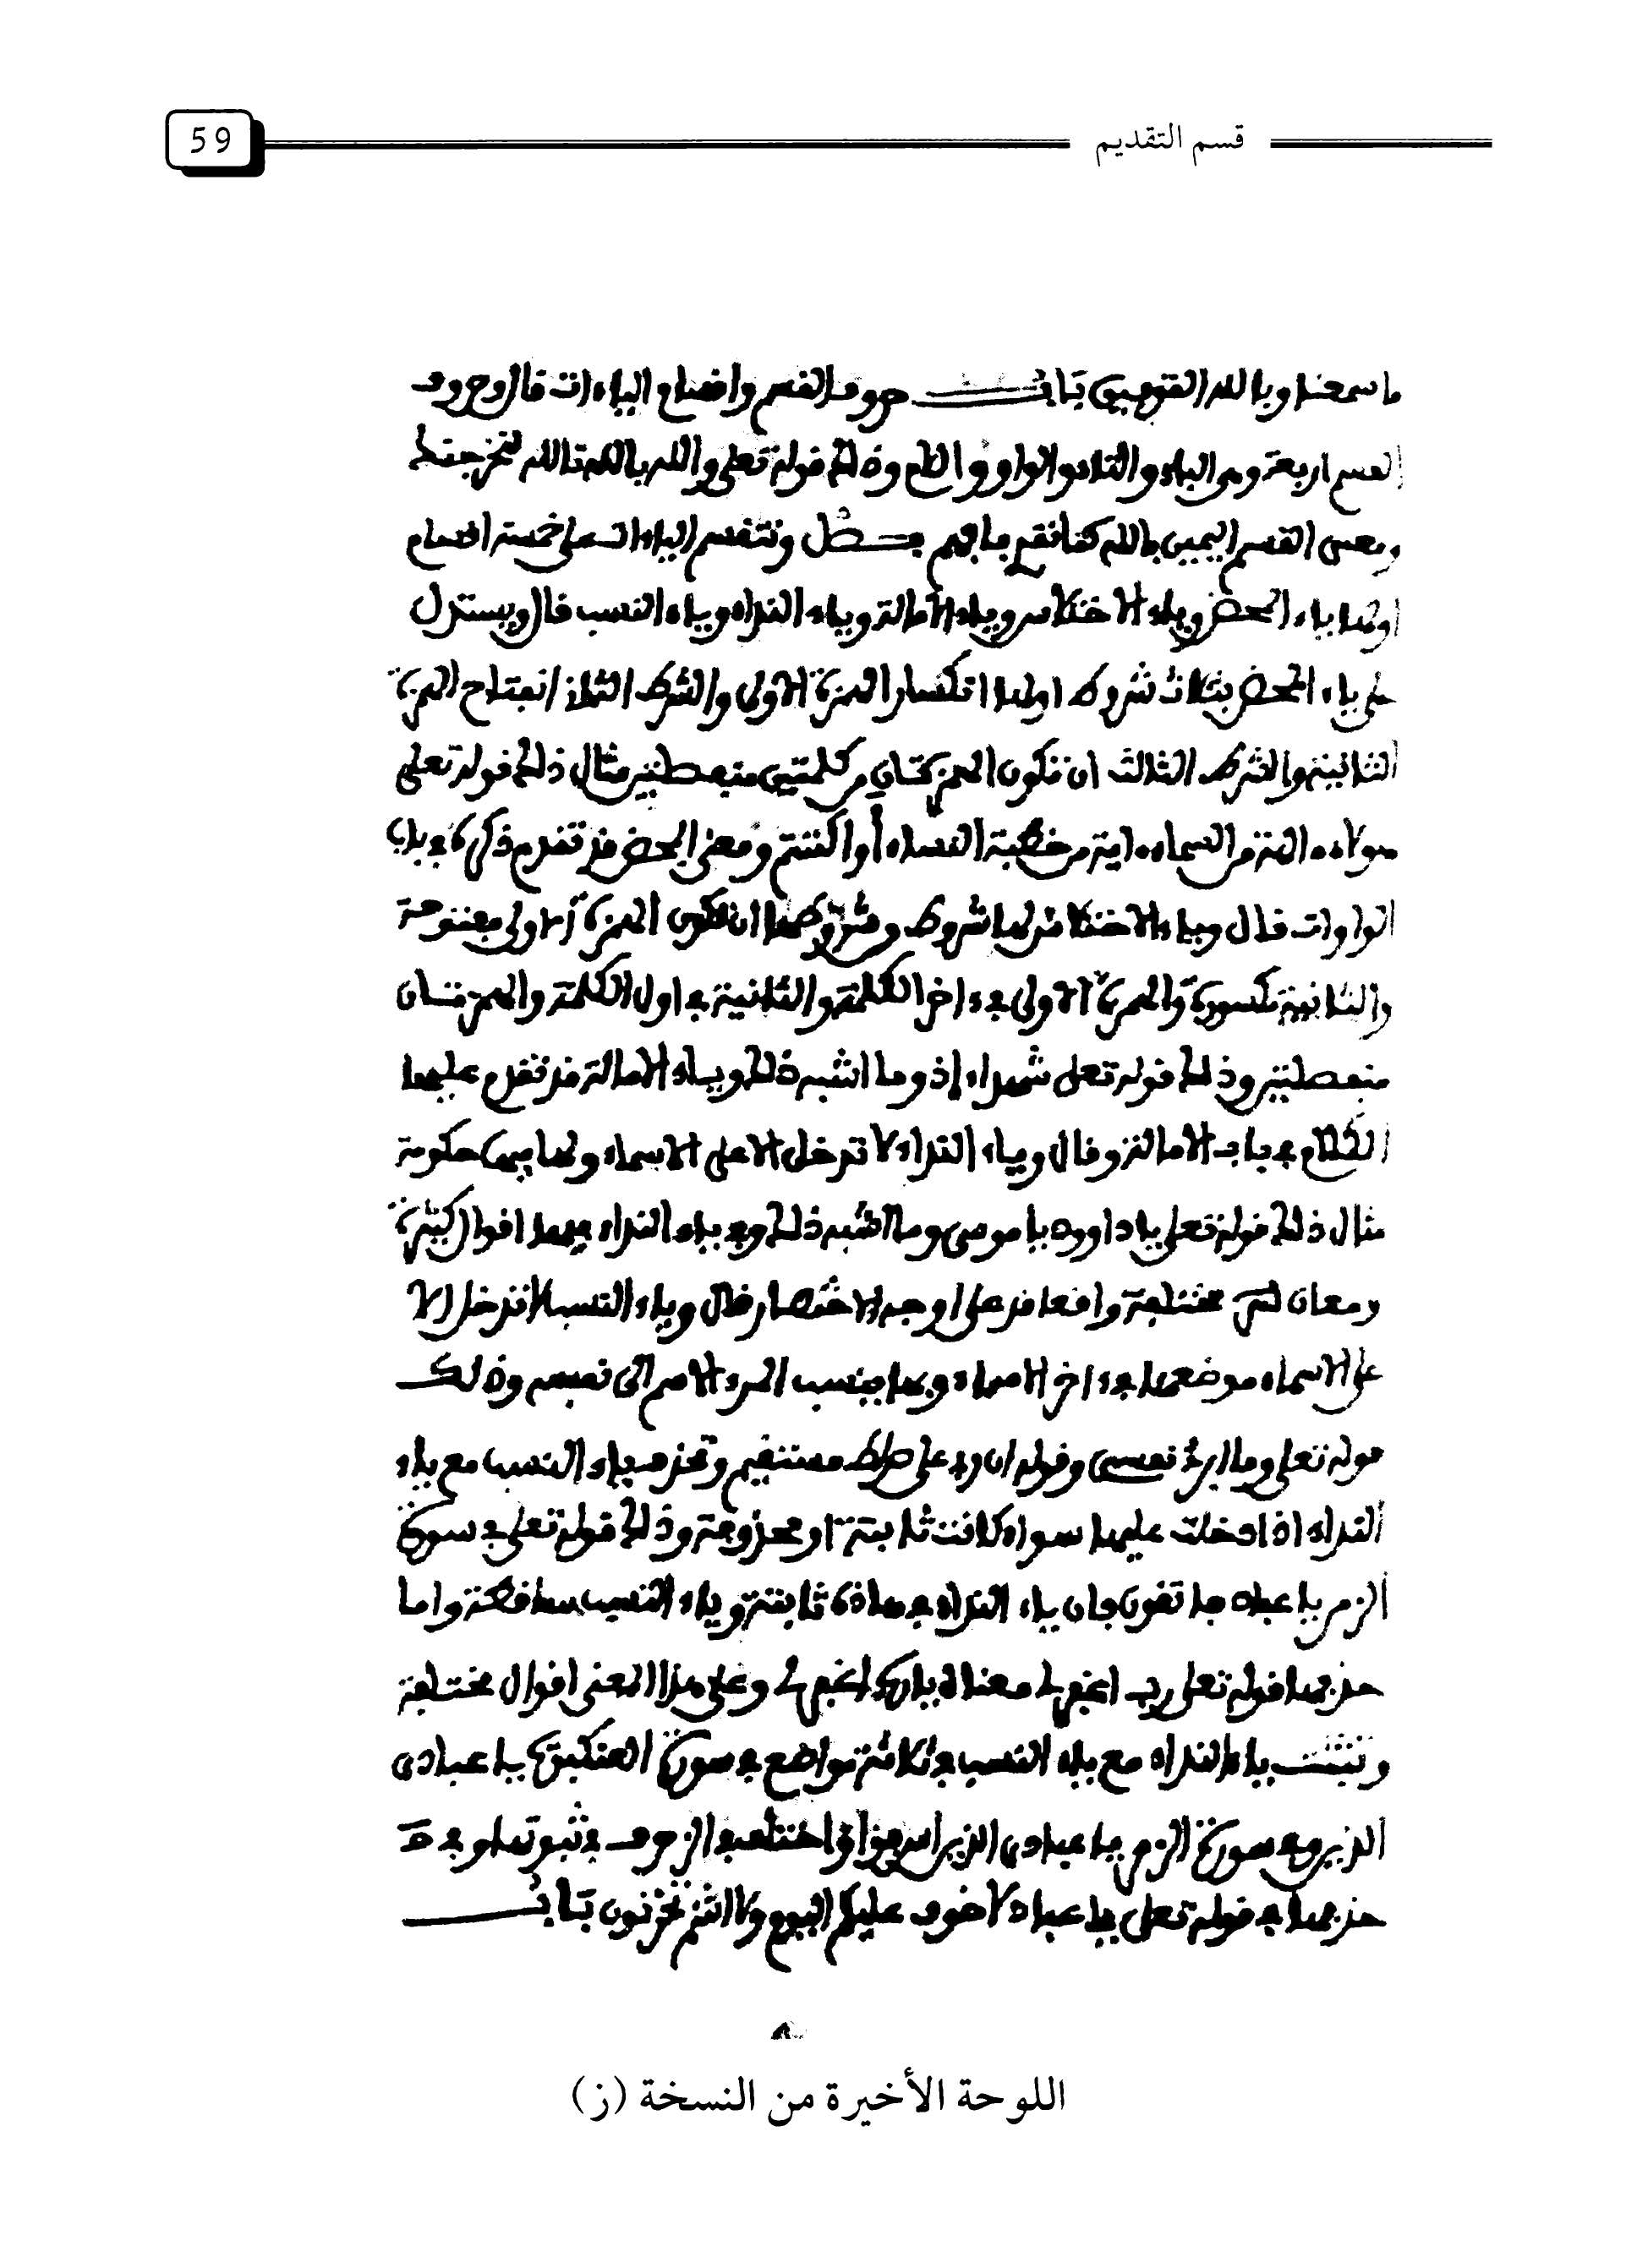 قسم التقديم
59
ما سمعنا وبالله التوفيق باب حروف القسم واقسام الياءات قال وحروف
القسم اربعة وهي الباء والتاء والواو و وذلك قوله تعلى والله بالله تالله
ومعنى القسم اليمين بالله كما تقدم وتنقسم الياءات على خمسة اقسام
اولها ياء المحض وياء الاختلاس وياء الامالة وياء النداء وياء النسب قال ويستدل
على ياء المحض بثلاث شروط اولها انكسار الهمزة الاولى والشرط الثاني انفتاح الهمزة
الثانية والشرط الثالث ان تكون الهمزتان من كلمتين منفصلتين مثال ذلك قوله تعلى
هؤلاء ءالهة من السماء ءاية من خطبة النساء أو اكننتم ومعنى المحض قد تقدم ذكره في باب
الواوات قال وياء الاختلاس لها شروط وشروطها ان تكون الهمزة الاولى مفتوحة
والثانية مكسورة والهمزة الاولى في ءاخر الكلمة والثانية في اول الكلمة والهمزتان
منفصلتين وذلك قوله تعلى شهداء اذ وما اشبه ذلك وياء الامالة قد تقدم عليها
الكلام في باب الامالة وقال وياء النداء لا تدخل الا على الاسماء ولها فيها حكومة
مثال ذلك قوله تعلى يا داوود يا موسى وما اشبه ذلك وفي ياء النداء فيها اقوال كثيرة
ومعان مختلفة على اوجه الاختصار قال وياء النسب لا تدخل الا
على الاسماء موضعها في ءاخر الاسماء وبها ينسب المرء الاسم الى نفسه وذلك
قوله تعلى وما ابرئ نفسي وقوله ان ربي على صراط مستقيم وتحذف ياء النسب مع ياء
النداء اذا دخلت عليها سواء كانت ثابتة او محذوفة وذلك قوله تعلى في سورة
الزمر يا عباد فاتقون فان ياء النداء في هاذه ثابتة وياء النسب ساقطة واما
حذفها قوله تعلى رب اغفر لي معناه يا رب اغفر لي وعلى هذا المعنى اقوال مختلفة
وتثبت ياء النداء مع ياء النسب في ثلاثة مواضع في سورة العنكبوت يا عبادي
الذين وفي سورة الزمر يا عبادي الذين اسرفوا واختلف في الزخرف في ثبوتها وفي
حذفها في قوله تعلى يا عباد لا خوف عليكم اليوم ولا انتم تحزنون باب
اللوحة الأخيرة من النسخة (ز)